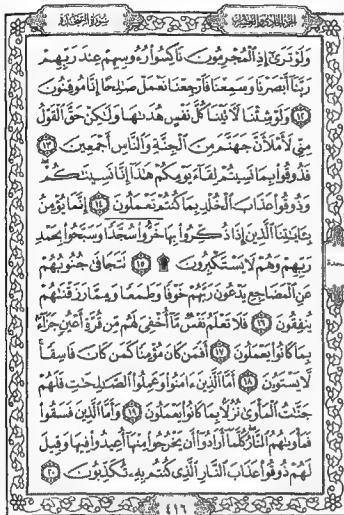 الجزء الحادي والعشرون
سورة السجدة
وَلَوْ تَرَىٰٓ إِذِ ٱلْمُجْرِمُونَ نَاكِسُوا۟ رُءُوسِهِمْ عِندَ رَبِّهِمْ
رَبَّنَآ أَبْصَرْنَا وَسَمِعْنَا فَٱرْجِعْنَا نَعْمَلْ صَٰلِحًا إِنَّا مُوقِنُونَ
١٢ وَلَوْ شِئْنَا لَءَاتَيْنَا كُلَّ نَفْسٍ هُدَىٰهَا وَلَٰكِنْ حَقَّ ٱلْقَوْلُ
مِنِّى لَأَمْلَأَنَّ جَهَنَّمَ مِنَ ٱلْجِنَّةِ وَٱلنَّاسِ أَجْمَعِينَ ١٣
فَذُوقُوا۟ بِمَا نَسِيتُمْ لِقَآءَ يَوْمِكُمْ هَٰذَآ إِنَّا نَسِينَٰكُمْ
وَذُوقُوا۟ عَذَابَ ٱلْخُلْدِ بِمَا كُنتُمْ تَعْمَلُونَ ١٤ إِنَّمَا يُؤْمِنُ
بِـَٔايَٰتِنَا ٱلَّذِينَ إِذَا ذُكِّرُوا۟ بِهَا خَرُّوا۟ سُجَّدًا وَسَبَّحُوا۟ بِحَمْدِ
رَبِّهِمْ وَهُمْ لَا يَسْتَكْبِرُونَ ۩ ١٥ تَتَجَافَىٰ جُنُوبُهُمْ
عَنِ ٱلْمَضَاجِعِ يَدْعُونَ رَبَّهُمْ خَوْفًا وَطَمَعًا وَمِمَّا رَزَقْنَٰهُمْ
يُنفِقُونَ ١٦ فَلَا تَعْلَمُ نَفْسٌ مَّآ أُخْفِىَ لَهُم مِّن قُرَّةِ أَعْيُنٍ جَزَآءًۢ
بِمَا كَانُوا۟ يَعْمَلُونَ ١٧ أَفَمَن كَانَ مُؤْمِنًا كَمَن كَانَ فَاسِقًا
لَّا يَسْتَوُۥنَ ١٨ أَمَّا ٱلَّذِينَ ءَامَنُوا۟ وَعَمِلُوا۟ ٱلصَّٰلِحَٰتِ فَلَهُمْ
جَنَّٰتُ ٱلْمَأْوَىٰ نُزُلًۢا بِمَا كَانُوا۟ يَعْمَلُونَ ١٩ وَأَمَّا ٱلَّذِينَ فَسَقُوا۟
فَمَأْوَىٰهُمُ ٱلنَّارُ كُلَّمَآ أَرَادُوٓا۟ أَن يَخْرُجُوا۟ مِنْهَآ أُعِيدُوا۟ فِيهَا وَقِيلَ
لَهُمْ ذُوقُوا۟ عَذَابَ ٱلنَّارِ ٱلَّذِى كُنتُم بِهِۦ تُكَذِّبُونَ ٢٠
سجدة
٤١٦